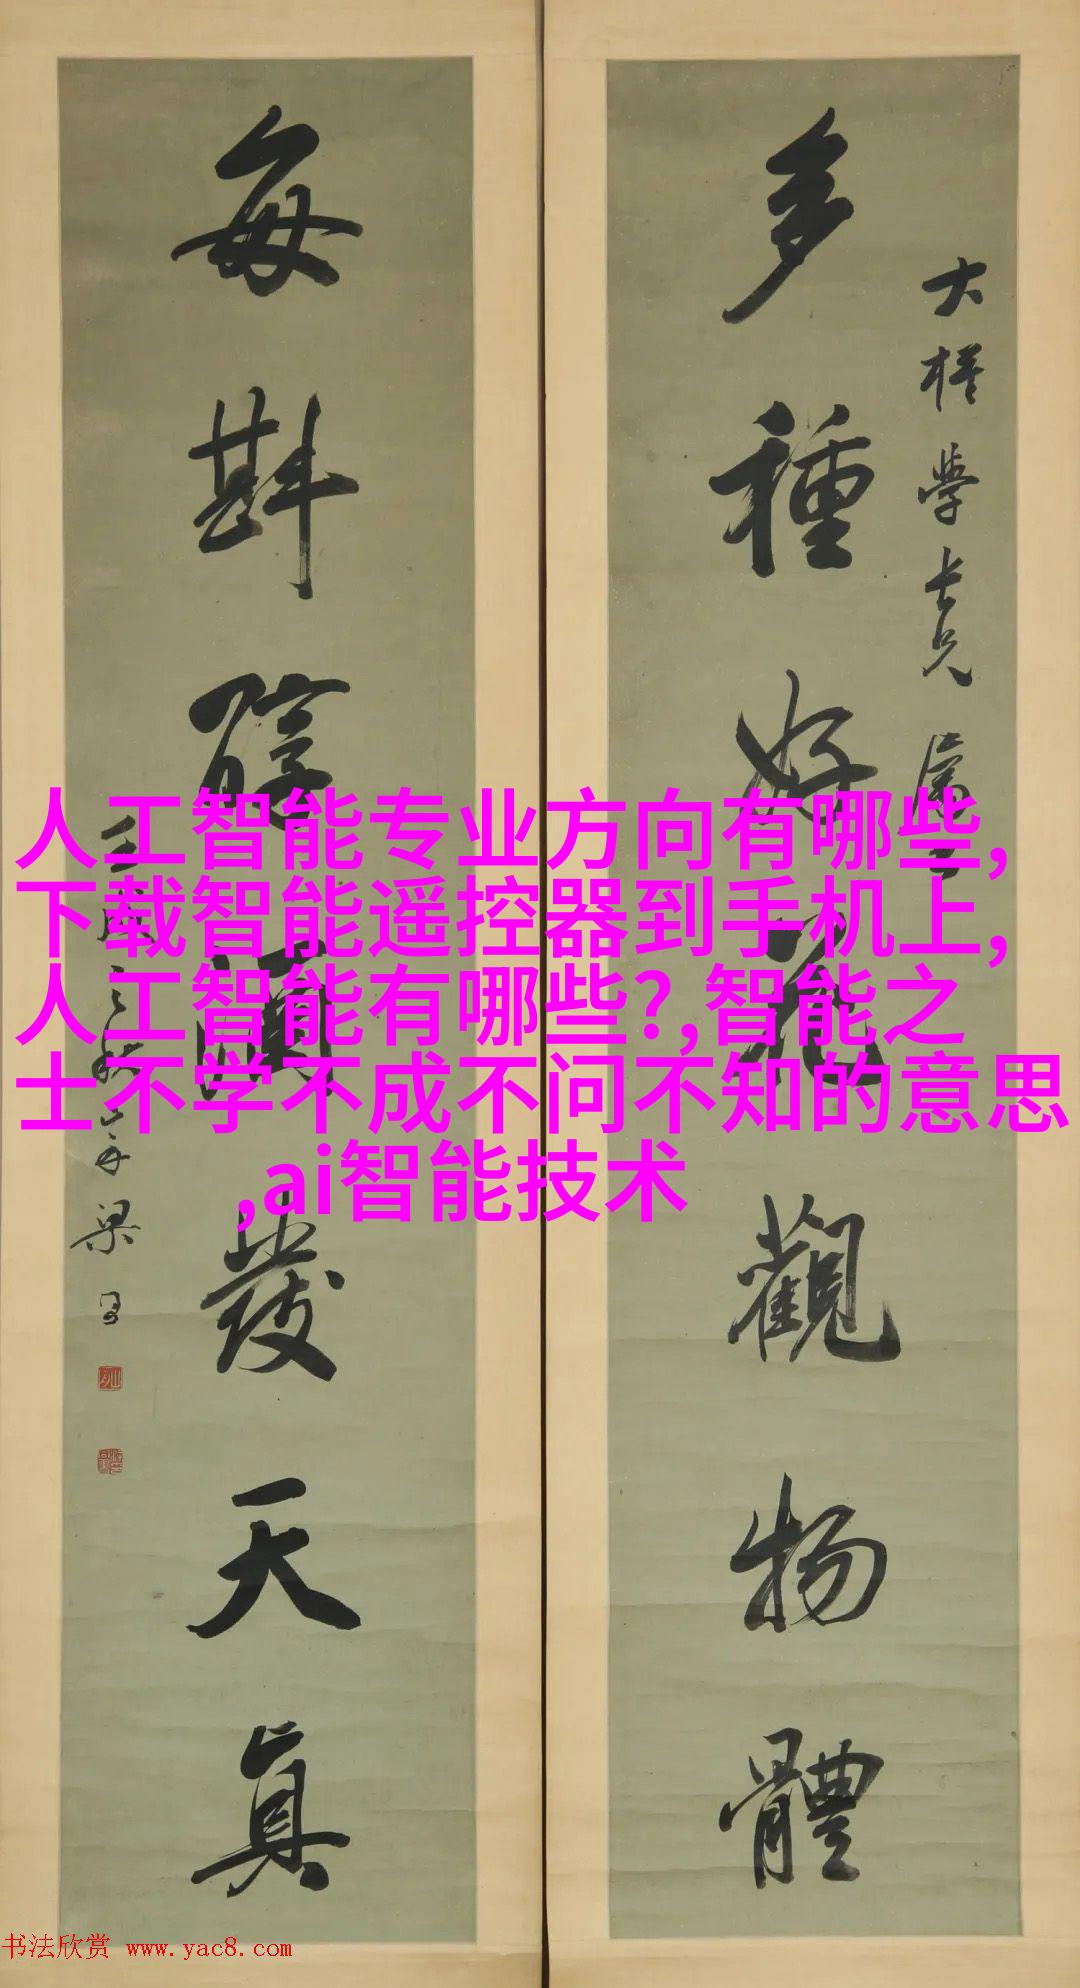 大
學長兄屬
多種好花觀物體
每斟醇酒發天真
壬戌之秋
梁
人工智能专业方向有哪些,
下载智能遥控器到手机上,
人工智能有哪些?,智能之
士不学不成不问不知的意思
,ai智能技术
书法欣赏 www.yac8.com